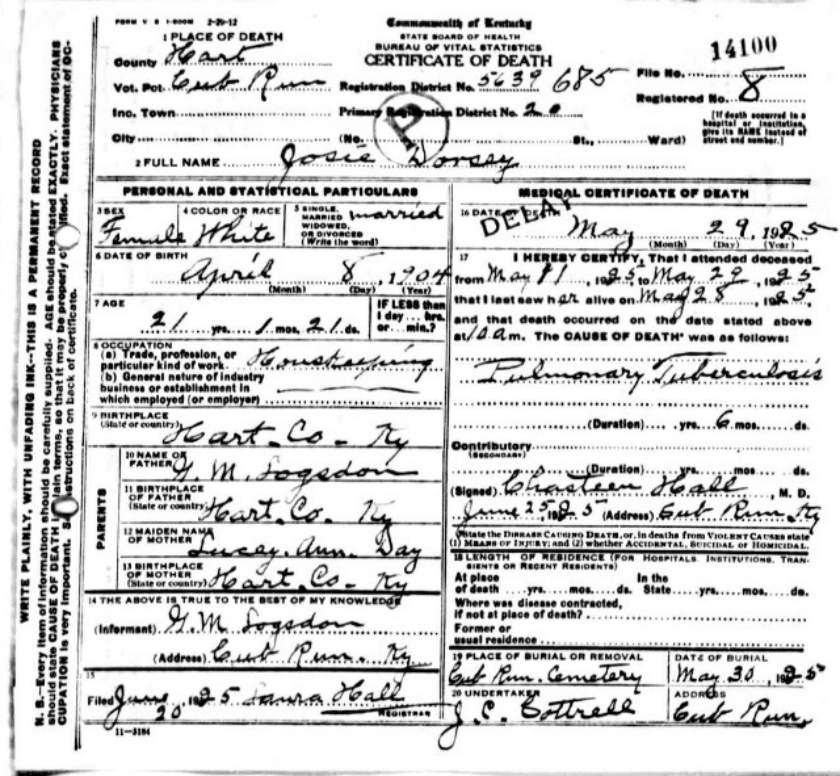 FORM V S 1-500M 2-29-12
Commonwealth of Kentucky
STATE BOARD OF HEALTH
BUREAU OF VITAL STATISTICS
CERTIFICATE OF DEATH
1 PLACE OF DEATH
County Hart
Vot. Pct. Cub Run
Inc. Town
City
Registration District No. 5639 685
Primary Registration District No. 20
(No. St., Ward)
P
14100
File No.
Registered No. 8
[If death occurred in a
hospital or institution,
give its NAME instead of
street and number.]
2 FULL NAME Josie Dorsey
PERSONAL AND STATISTICAL PARTICULARS
3 SEX
Female
4 COLOR OR RACE
White
5 SINGLE,
MARRIED
WIDOWED,
OR DIVORCED
(Write the word)
married
6 DATE OF BIRTH
April 8, 1904
(Month) (Day) (Year)
7 AGE
21 yrs. 1 mos. 21 ds.
IF LESS than
1 day... hrs.
or... min.?
8 OCCUPATION
(a) Trade, profession, or
particular kind of work. Houskeeping
(b) General nature of industry
business or establishment in
which employed (or employer)
9 BIRTHPLACE
(State or country) Hart Co - Ky
PARENTS
10 NAME OF
FATHER G. M. Logsdon
11 BIRTHPLACE
OF FATHER
(State or country) Hart Co. Ky
12 MAIDEN NAME
OF MOTHER Lucey Ann Day
13 BIRTHPLACE
OF MOTHER
(State or country) Hart Co - Ky
14 THE ABOVE IS TRUE TO THE BEST OF MY KNOWLEDGE
(Informant) G. M. Logsdon
(Address) Cub Run. Ky
15
Filed June 20, 1925 Laura Hall
REGISTRAR
11-3184
MEDICAL CERTIFICATE OF DEATH
DELAY
16 DATE OF DEATH
May 29, 1925
(Month) (Day) (Year)
17 I HEREBY CERTIFY, That I attended deceased
from May 11, 1925 to May 29, 1925
that I last saw her alive on May 28, 1925
and that death occurred on the date stated above
at 10 a m. The CAUSE OF DEATH* was as follows:
Pulmonary Tuberculosis
(Duration) yrs. 6 mos. ds.
Contributory
(SECONDARY)
(Duration) yrs. mos. ds.
(Signed) Chasteen Hall, M. D.
June 25, 1925 (Address) Cub Run, Ky
*State the DISEASE CAUSING DEATH, or, in deaths from VIOLENT CAUSES state
(1) MEANS OF INJURY; and (2) whether ACCIDENTAL, SUICIDAL or HOMICIDAL.
18 LENGTH OF RESIDENCE (FOR HOSPITALS, INSTITUTIONS, TRAN-
SIENTS OR RECENT RESIDENTS)
At place
of death yrs. mos. ds.
In the
State yrs. mos. ds.
Where was disease contracted,
if not at place of death?
Former or
usual residence
19 PLACE OF BURIAL OR REMOVAL
Cub Run. Cemetery
DATE OF BURIAL
May 30, 1925
20 UNDERTAKER
J. C. Cottrell
ADDRESS
Cub Run.
WRITE PLAINLY, WITH UNFADING INK--THIS IS A PERMANENT RECORD
N. B.--Every item of information should be carefully supplied. AGE should be stated EXACTLY. PHYSICIANS
should state CAUSE OF DEATH in plain terms, so that it may be properly classified. Exact statement of OC-
CUPATION is very important. See instructions on back of certificate.